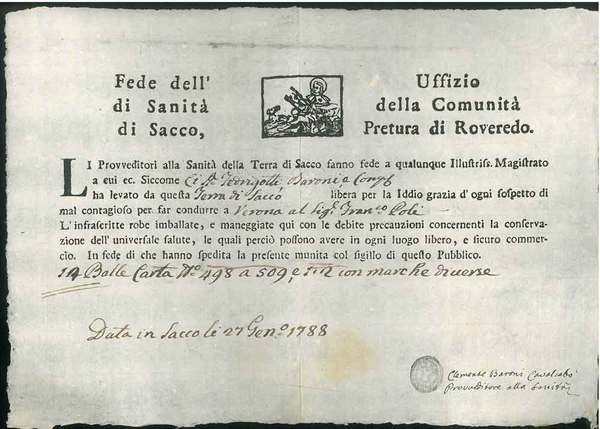 Fede dell' Uffizio
di Sanità della Comunità
di Sacco, Pretura di Roveredo.
LI Provveditori alla Sanità della Terra di Sacco fanno fede a qualunque Illustriss. Magistrato
a cui ec. Siccome Baroni e Comp
ha levato da questa Terra di Sacco libera per la Iddio grazia d'ogni sospetto di
mal contagioso per far condurre a Verona al Sigr Franco Poli
L'infrascritte robe imballate, e maneggiate qui con le debite precauzioni concernenti la conserva-
zione dell'universale salute, le quali perciò possono avere in ogni luogo libero, e sicuro commer-
cio. In fede di che hanno spedita la presente munita col sigillo di questo Pubblico.
14 Balle Carta No 498 a 509 e con marche diverse
Data in Sacco li 27 Geno 1788
Clemente Baroni Cavalcabò
Provveditore alla Sanità